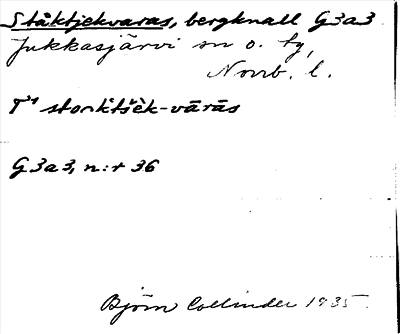 Ståktjekvaras, bergknall G3a3
Jukkasjärvi sn o. tg,
Norrb. l.
stoŕktšèk-vārās
G3a3, n:r 36
Björn Collinder 1935.